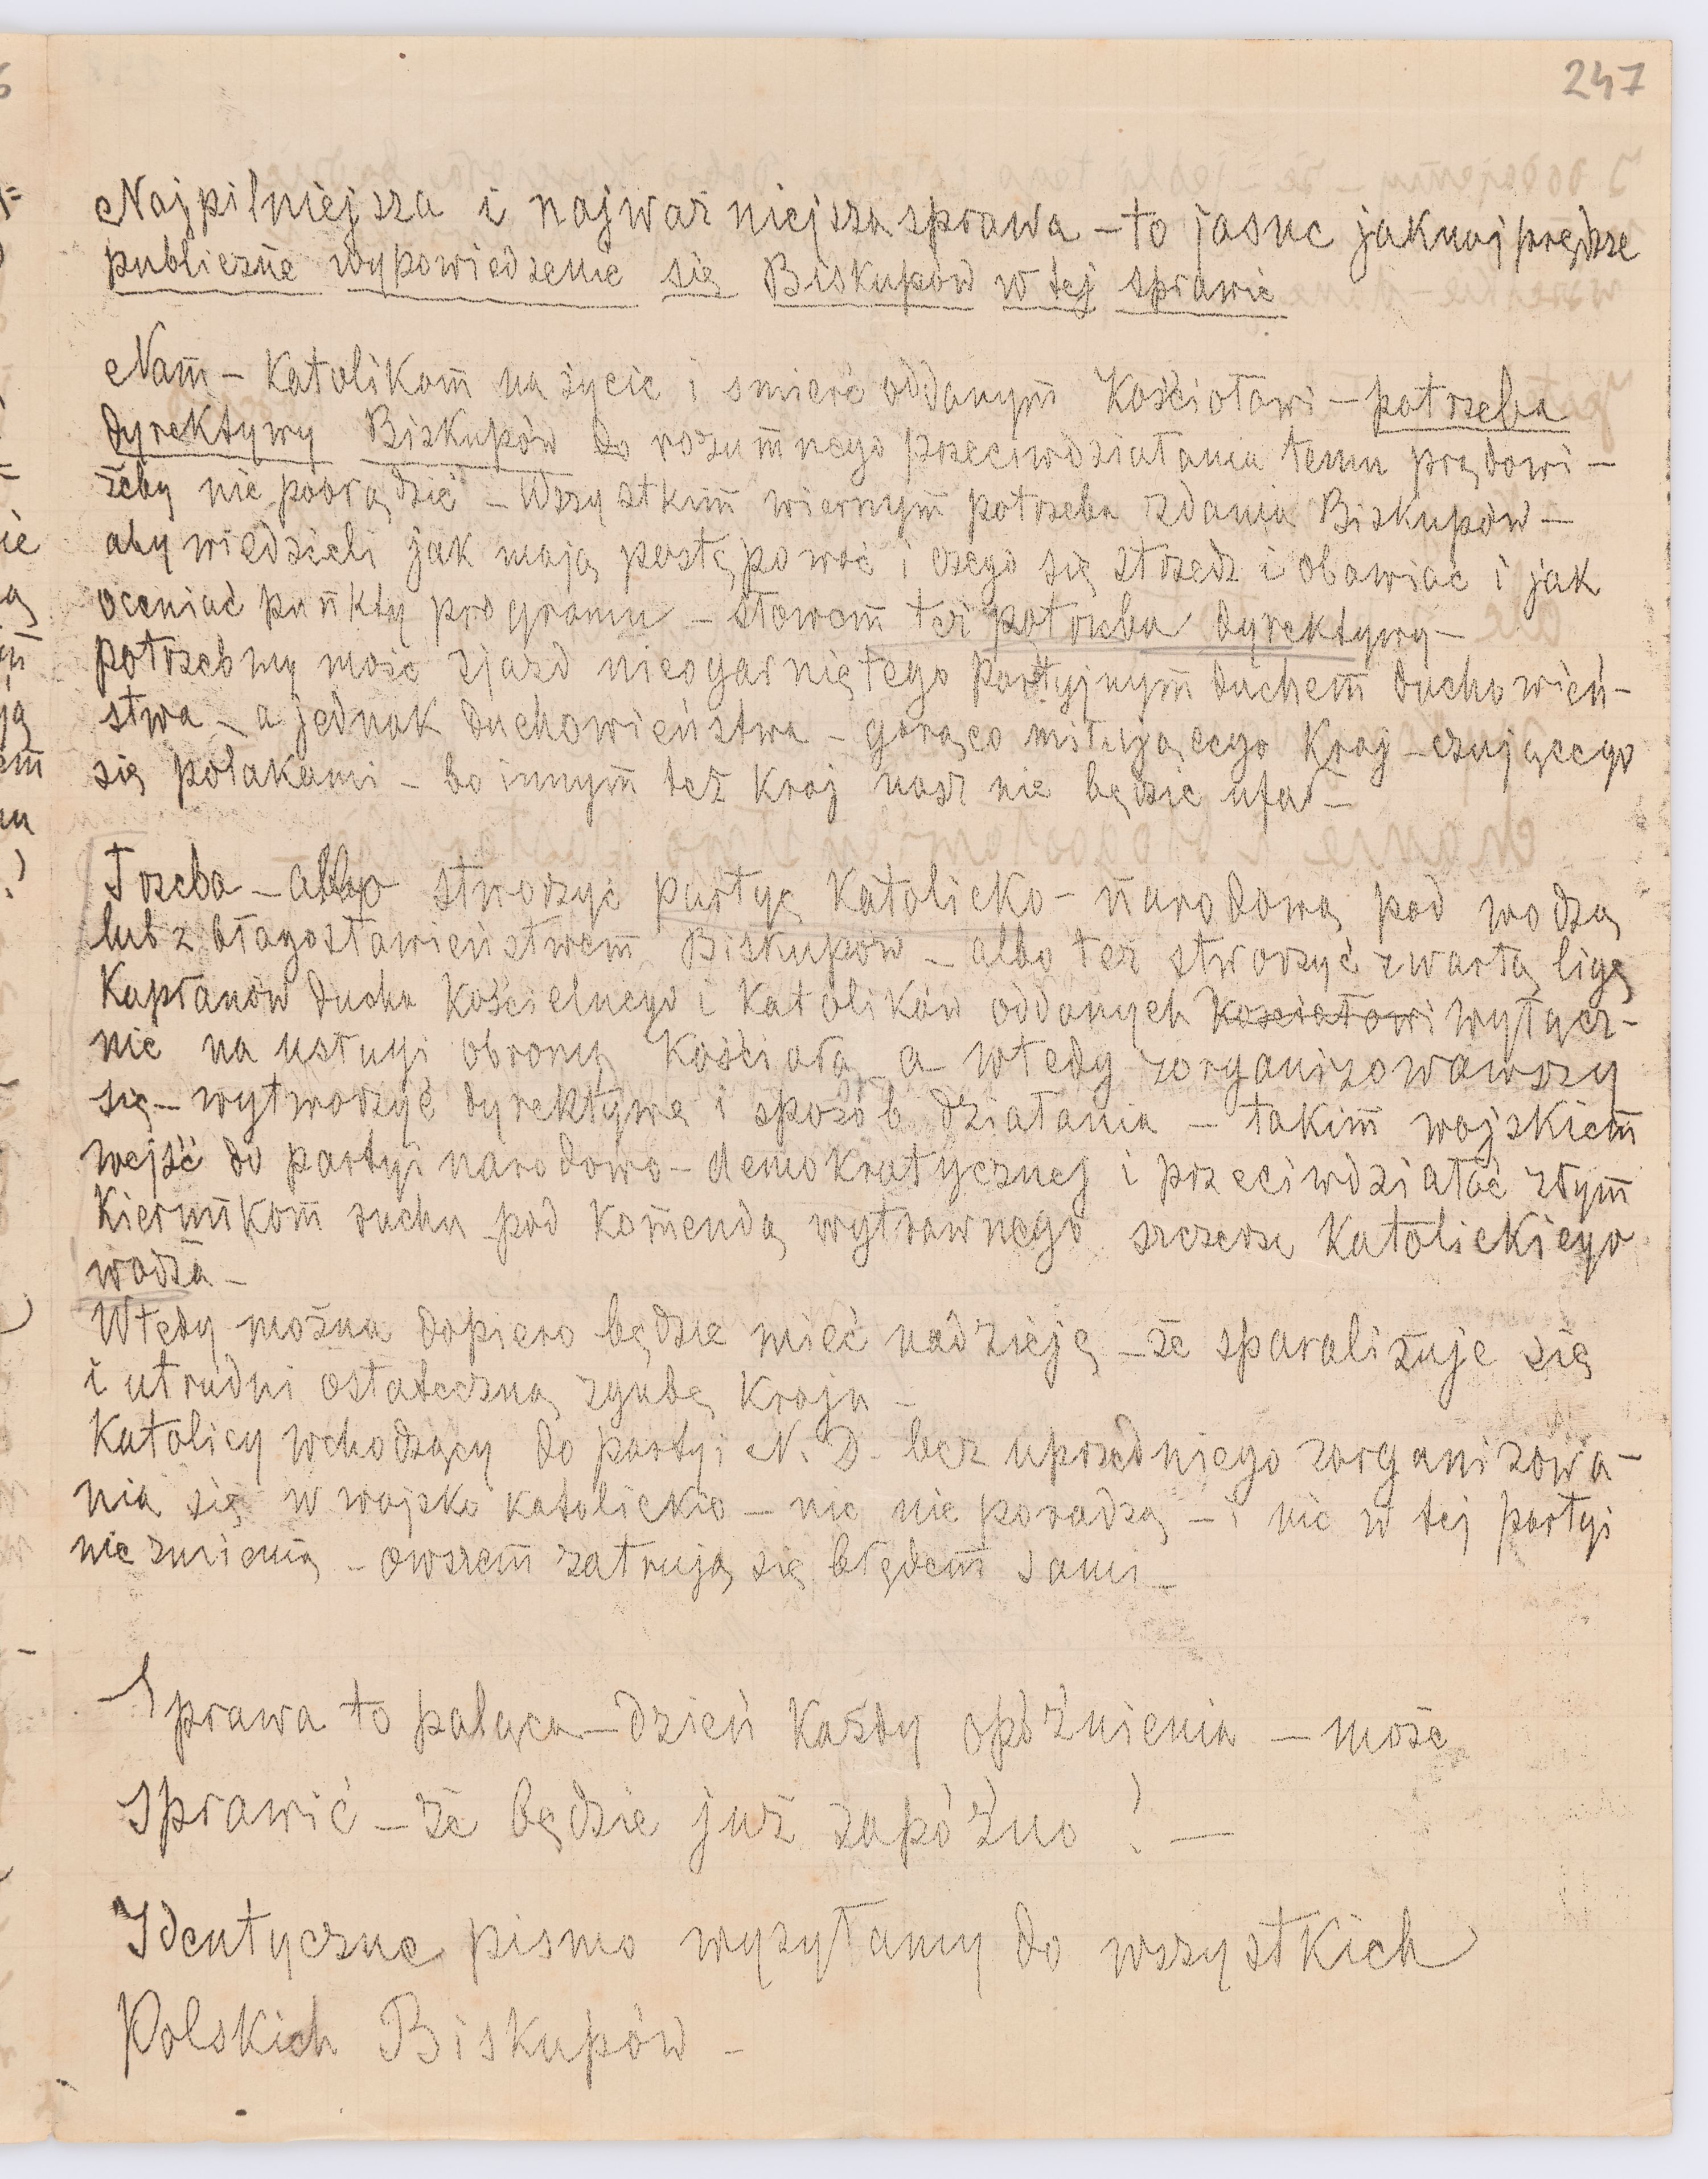 247
Najpilniejsza i najważniejsza sprawa – to jasne jaknajprędsze
publiczne wypowiedzenie się Biskupów w tej sprawie
Nam – Katolikom na życie i smierć oddanym Kościołowi – potrzeba
dyrektywy Biskupów do rozumnego przeciwdziałania temu prądowi –
żeby nie pobrądzić – Wszystkim wiernym potrzeba zdania Biskupów –
aby wiedzieli jak mają postępować i czego się strzedz i obawiac i jak
oceniać punkty programu – słowem też potrzeba dyrektywy –
potrzebny może zjazd nieogarniętego partyjnym duchem duchowień-
stwa – a jednak duchowieństwa – gorąco miłującego Kraj – czującego
się polakami – bo innym też Kraj nasz nie będzie ufał –
Trzeba – albo stworzyć partyę Katolicko – narodową pod wodzą
lub z błagosławieństwem Biskupów – albo też stworzyć zwartą ligę
Kapłanów ducha Kościelnego i Katolików oddanych Kościołowi wyłącz-
nie na usługi obrony Kościoła – a wtedy zorganizowawszy
się – wytworzyć dyrektywę i sposób działania – takim wojskiem
wejść do partyi narodowo – demokratycznej i przeciwdziałać złym
Kierunkom ruchu pod Komendą wytrawnego szczerze Katolickiego
wodza –
Wtedy można dopiero będzie mieć nadzieję – że sparaliżuje się
i utrudni ostateczną zgubę Kraju –
Katolicy wchodzący do partyi N. D. bez uprzedniego zorganizowa-
nia się w wojsko katolickie – nic nie poradzą – i nic w tej partyi
nie zmienią – owszem zatrują się błędem sami –
Sprawa to paląca – dzień Każdy opóźnienia – może
sprawić – że będzie już zapóźno! –
Identyczne pismo wysyłamy do wszystkich
Polskich Biskupów –